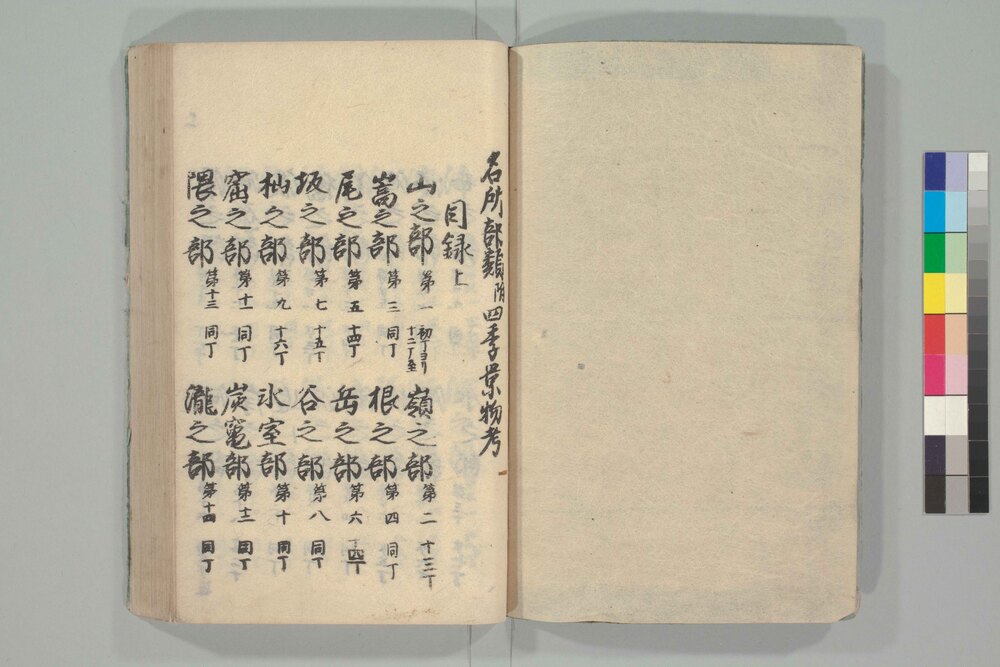 名所部類附四季景物考
目録上
山之部 第一 初丁ヨリ十二丁至
嶺之部 第二 十三丁
嵩之部 第三 同丁
根之部 第四 同丁
尾之部 第五 十四丁
岳之部 第六 十四丁
坂之部 第七 十五丁
谷之部 第八 同丁
杣之部 第九 十六丁
氷室部 第十 同丁
窟之部 第十一 同丁
炭竃部 第十二 同丁
隈之部 第十三 同丁
瀧之部 第十四 同丁